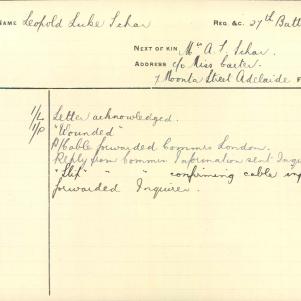 NAME Leopold Luke Schar REG. &C. 27th Batt
NEXT OF KIN Mrs A. L. Schar.
ADDRESS c/o Miss Carter.
7 Moonta Street Adelaide
1/L Letter acknowledged.
11/P "Wounded"
P/Cable forwarded Commrs London.
Reply from Commrs Information sent Inqu
"Slip" " " confirming cable
forwarded Inquirer.